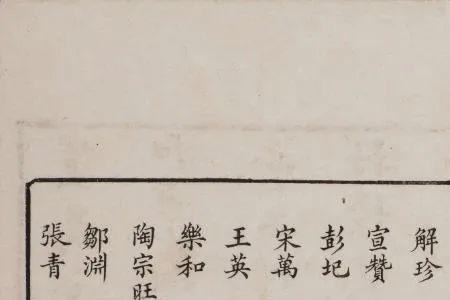 解珍
宣贊
彭圮
宋萬
王英
樂和
陶宗旺
鄒淵
張青